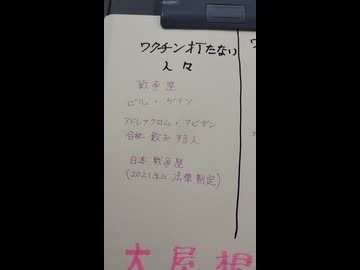 ワクチン打たない
人々
戦争屋
ビル・ゲイツ
アドレナクロム・アビガン
飲み する人
日本 戦争屋
(2021年 法律制定)
大屋根